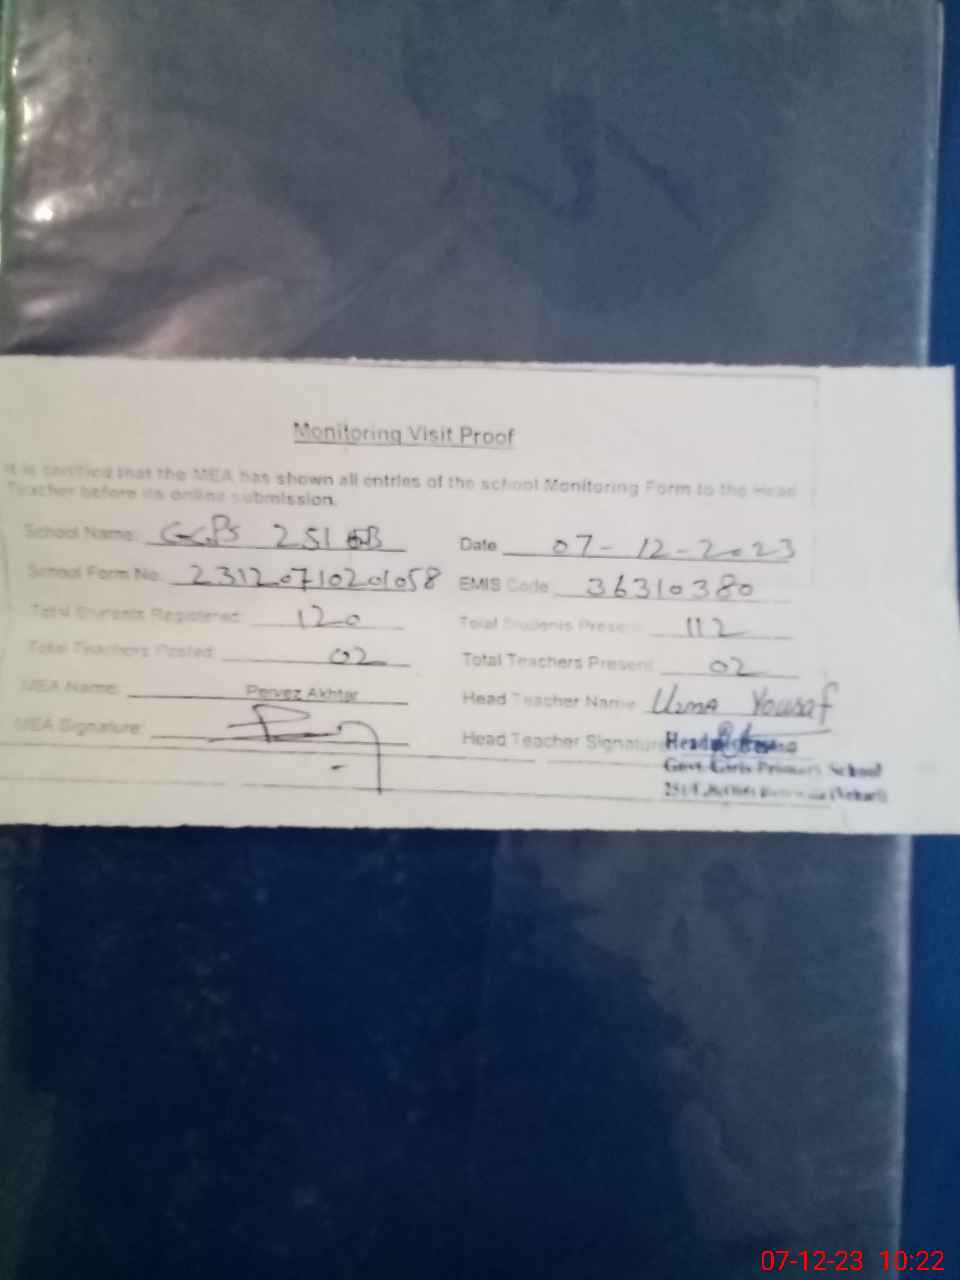 Monitoring Visit Proof
It is certified that the MEA has shown all entries of the school Monitoring Form to the Head
Teacher before its online submission.
School Name: GGPS 251 EB Date 07-12-2023
School Form No: 23120710201058 EMIS Code: 36310380
Total Students Registered: 120 Total Students Present: 112
Total Teachers Posted: 02 Total Teachers Present: 02
MEA Name: Pervez Akhtar Head Teacher Name: Uzma Yousaf
MEA Signature: Head Teacher Signature:
Headmistress
Govt. Girls Primary School
(Vehari)
07-12-23 10:22